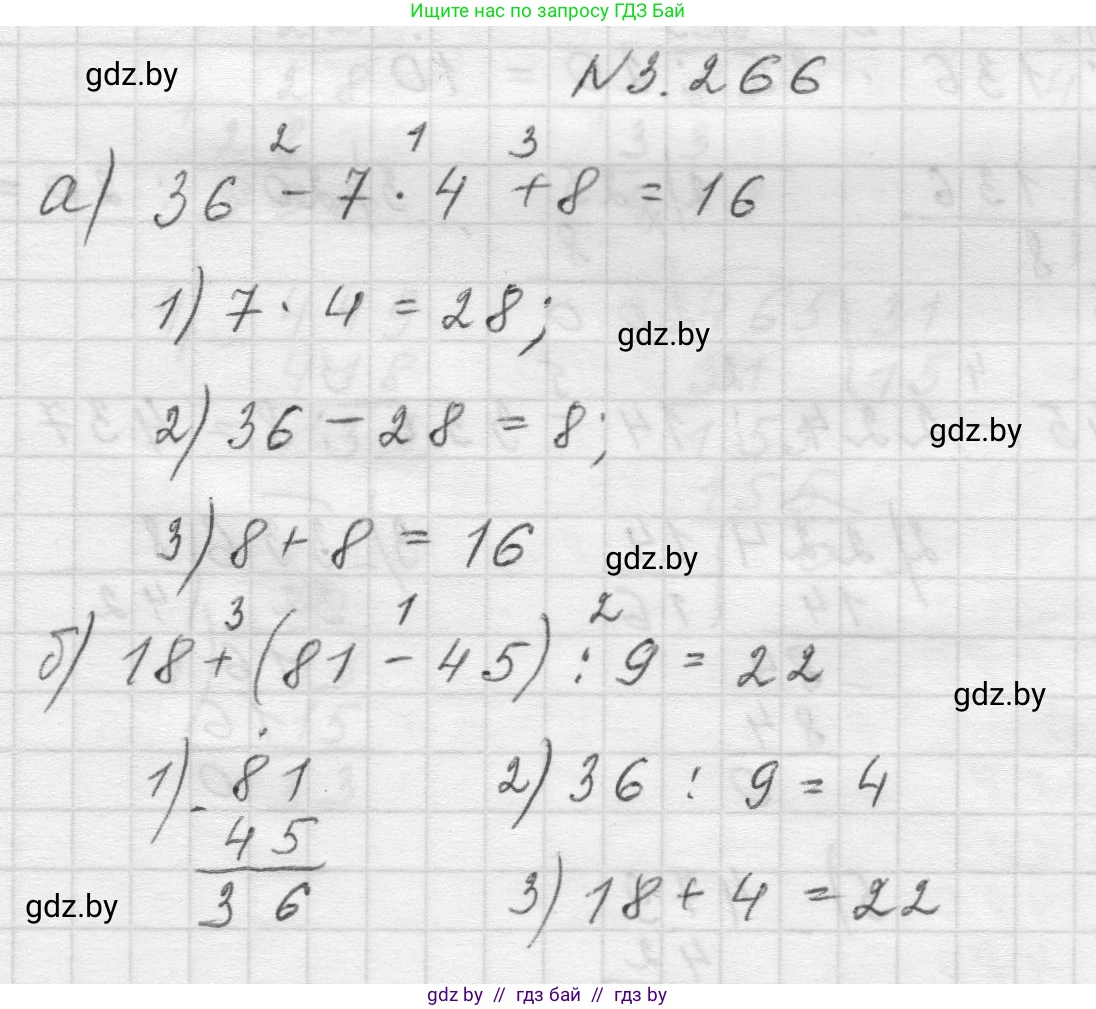 Ищите нас по запросу ГДЗ Бай
gdz.by
N 3.266
2 1 3
а) 36 - 7 · 4 + 8 = 16
1) 7 · 4 = 28;
gdz.by
2) 36 - 28 = 8;
gdz.by
3) 8 + 8 = 16
gdz.by
3 1 2
б) 18 + (81 - 45) : 9 = 22
gdz.by
1) - 81
45
36
2) 36 : 9 = 4
3) 18 + 4 = 22
gdz.by
gdz.by // гдз бай // гдз by